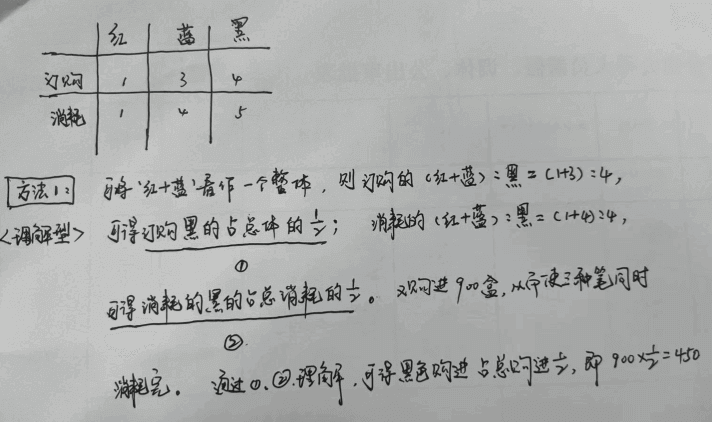 红 蓝 黑
订购 1 3 4
消耗 1 4 5
方法1: 可将'红+蓝'看作一个整体,则订购的(红+蓝):黑=(1+3):4,
<理解型> 可得订购黑的占总体的1/2; 消耗的(红+蓝):黑=(1+4):4,
①
可得消耗的黑的占总消耗的1/2。又购进900盒,从而使三种笔同时
②
消耗完。通过①、②理解,可得黑色购进占总购进1/2,即900×1/2=450